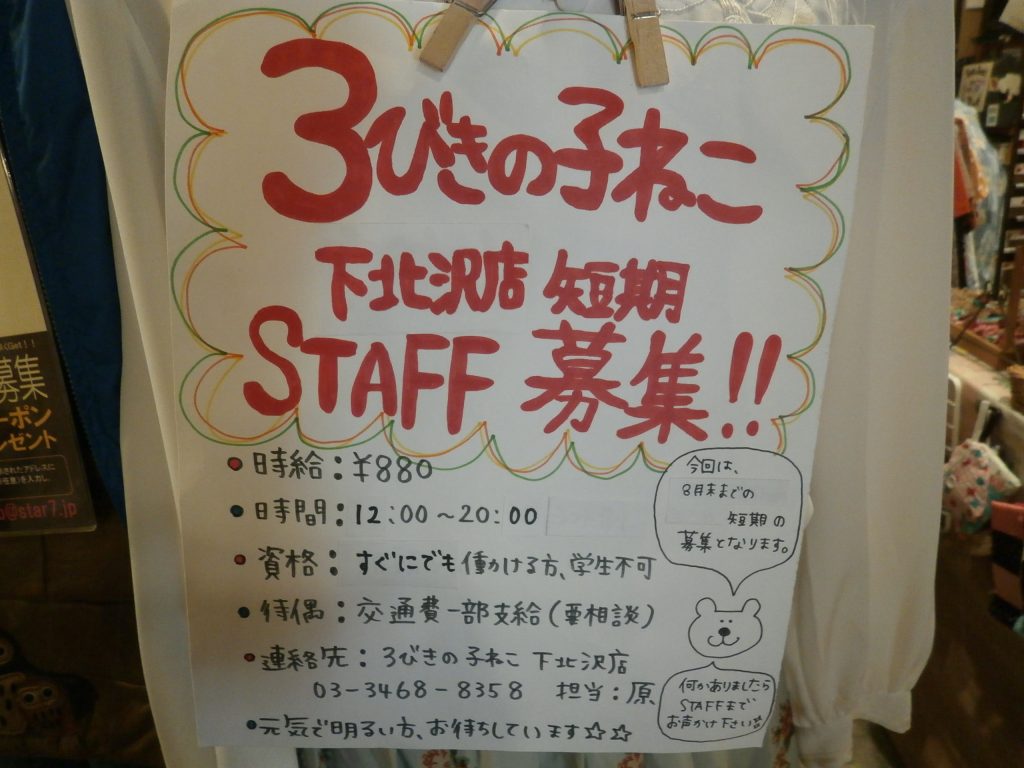 3びきの子ねこ
下北沢店 短期
STAFF 募集!!
•時給:¥880
•時間:12:00~20:00
•資格:すぐにでも働かける方、学生不可
•待偶:交通費一部支給(要相談)
•連絡先:3びきの子ねこ 下北沢店
03-3468-8358 担当:原
•元気で明るい方、お待ちしています☆☆
今回は、
8月末までの
短期の
募集となります。
何かありましたら
STAFFまで
お声かけ下さい☆
Get!!
募集
ーポン
レゼント
されたアドレスに
を入力し、
@star7.jp